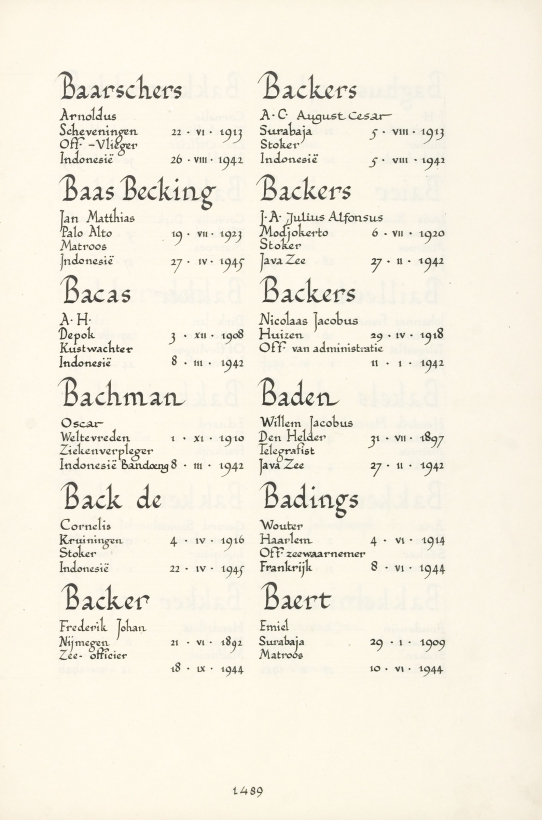 Baarschers
Arnoldus
Scheveningen 22 · VI · 1913
Off· -Vlieger
Indonesië 26 · VIII · 1942
Baas Becking
Jan Matthias
Palo Alto 19 · VII · 1923
Matroos
Indonesië 27 · IV · 1945
Bacas
A· H·
Depok 3 · XII · 1908
Kustwachter
Indonesië 8 · III · 1942
Bachman
Oscar
Weltevreden 1 · XI · 1910
Ziekenverpleger
Indonesië Bandoeng 8 · III · 1942
Back de
Cornelis
Kruiningen 4 · IV · 1916
Stoker
Indonesië 22 · IV · 1945
Backer
Frederik Johan
Nijmegen 21 · VI · 1892
Zee- officier
18 · IX · 1944
Backers
A· C· August Cesar
Surabaja 5 · VIII · 1913
Stoker
Indonesië 5 · VIII · 1942
Backers
J· A· Julius Alfonsus
Modjokerto 6 · VII · 1920
Stoker
Java Zee 27 · II · 1942
Backers
Nicolaas Jacobus
Huizen 29 · IV · 1918
Off· van administratie
11 · 1 · 1942
Baden
Willem Jacobus
Den Helder 31 · VII · 1897
Telegrafist
Java Zee 27 · II · 1942
Badings
Wouter
Haarlem 4 · VI · 1914
Off· zeewaarnemer
Frankrijk 8 · VI · 1944
Baert
Emiel
Surabaja 29 · 1 · 1909
Matroos
10 · VI · 1944
1489